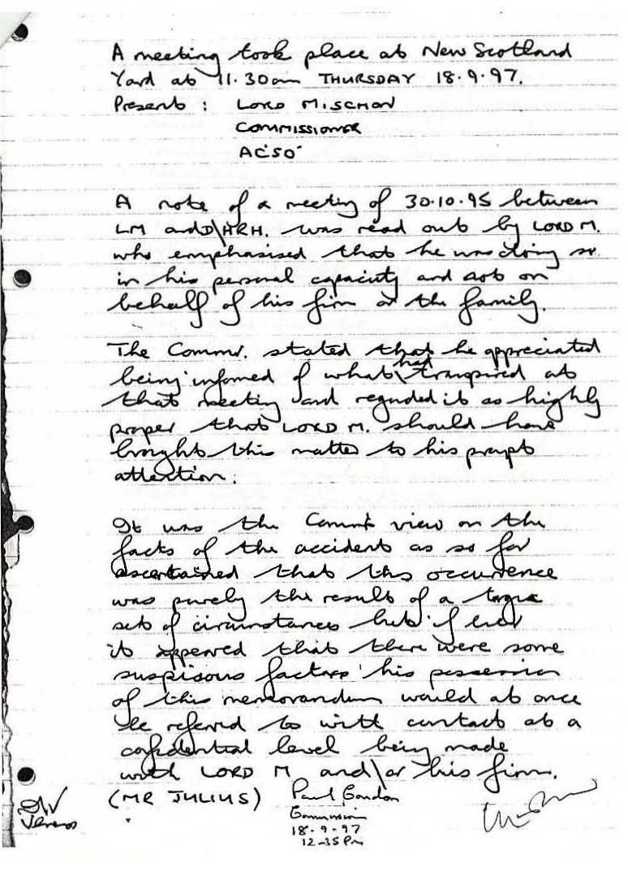 A meeting took place at New Scotland
Yard at 11.30am THURSDAY 18.9.97.
Present : LORD MISCHON
COMMISSIONER
ACSO
A note of a meeting of 30.10.95 between
LM and D/HRH. was read out by LORD M.
who emphasised that he was doing so
in his personal capacity and not on
behalf of his firm or the family.
The Commr. stated that he appreciated
being informed of what had transpired at
that meeting and regarded it as highly
proper that LORD M. should have
brought this matter to his prompt
attention.
It was the Commr view on the
facts of the accident as so far
ascertained that this occurrence
was purely the result of a tragic
set of circumstances but if ever
it appeared that there were some
suspicious factors his possession
of this memorandum would at once
be referred to with contact at a
confidential level being made
with LORD M and/or his firm.
(MR JULIUS) Paul Condon
Commissioner
18.9.97
12-35 Pm